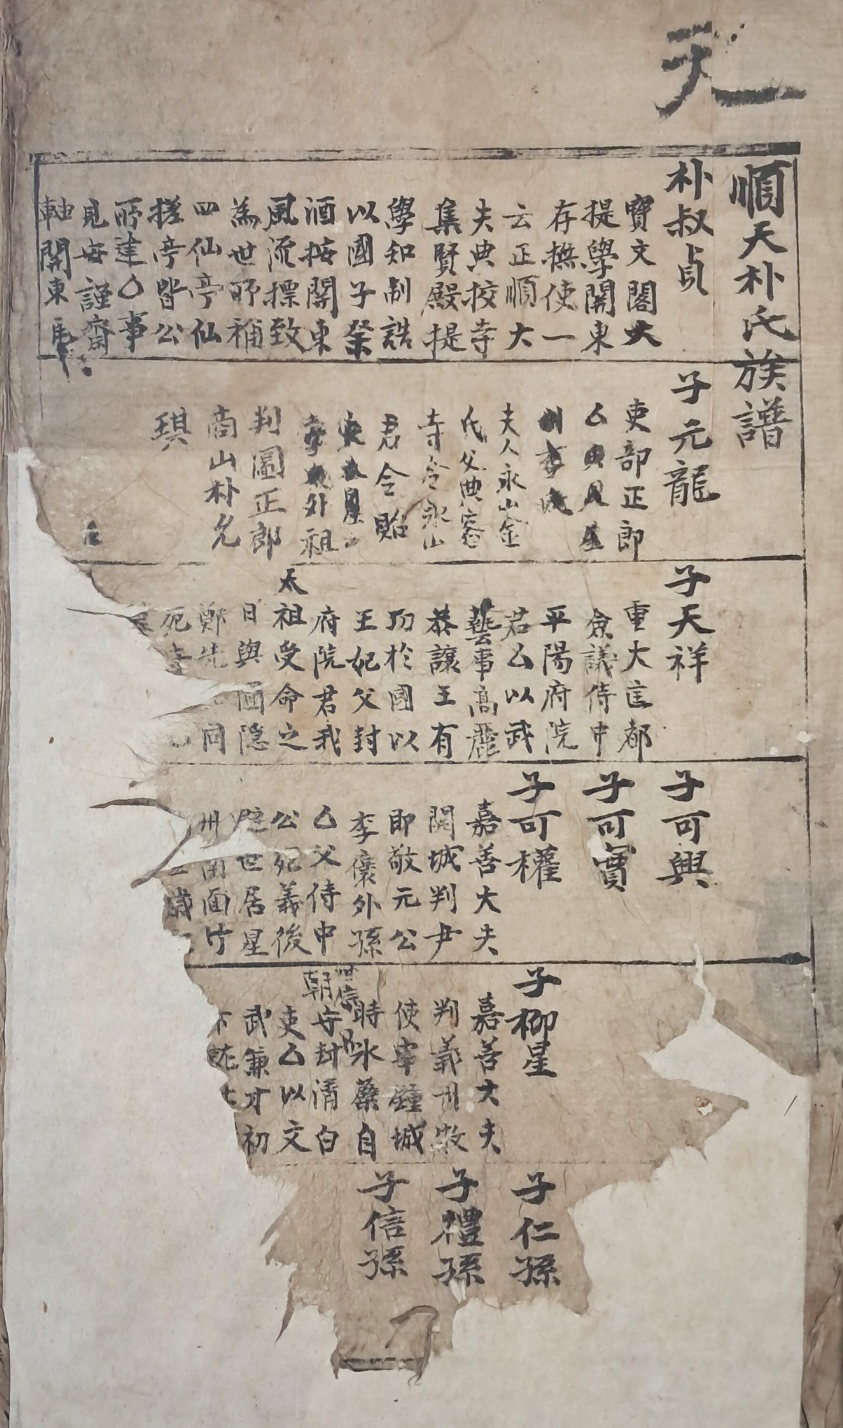 天
順天朴氏族譜
朴叔貞
寶文閣大
提學關東
存撫使一
云正順大
夫典校寺
集賢殿提
學知制誥
以國子祭
酒按關東
風流標致
為世所補
四仙亭仙
搓亭皆公
所建厶事
見安謹齋
軸關東
子元龍
吏部正郎
厶
夫人永山金
氏父典客
寺令永山
君令貽
外祖
判圖正郎
商山朴允
琪
子天祥
重大匡都
僉議侍中
平陽府院
君厶以武
藝事高麗
恭讓王有
功於國以
王妃父封
府院君我
太祖受命之
日與圃隱
鄭先 同
死
子可興
子可實
子可權
嘉善大夫
開城判尹
即敬元公
李懷外孫
厶父侍中
公死義後
世居星
州南面竹
子柳星
嘉善大夫
判義州牧
使宰鍾城
時氷蘗自
守封清白
朝
吏厶以文
武兼才初
子仁孫
子禮孫
子信孫